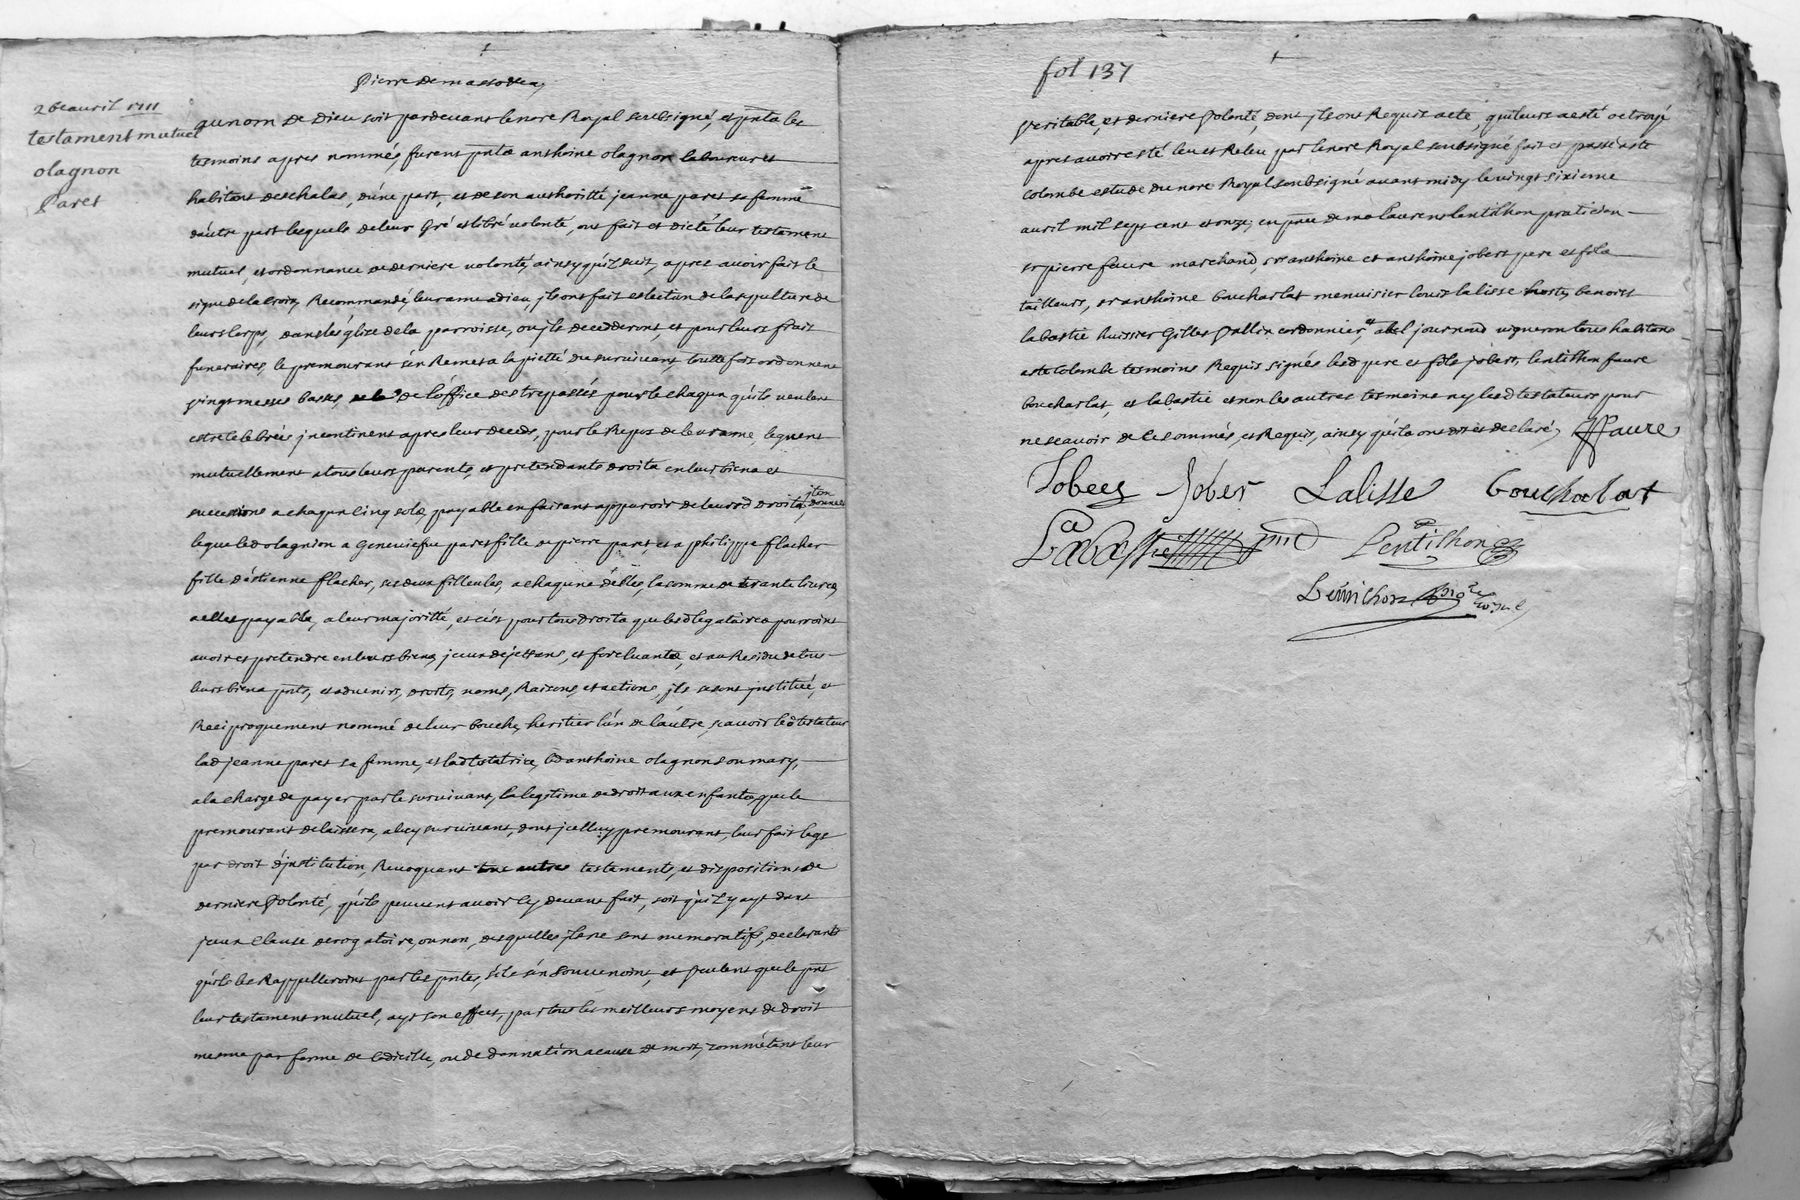 Pierre Demassodea
26e auril 1711
testament mutuel
olagnon
Paret
au nom De Dieu soit pardeuant le nore Royal soubsigné, et pnts les
tesmoins apres nommés, furent pnts anthoine olagnon laboureur et
habitant deschalas, d'une part, et de son authoritté jeanne paret sa femme
d'autre part lesquels de leur Gré et libre volonté, ont fait et dicté leur testament
mutuel, et ordonnance de derniere volonté, ainsy qu'il suit, apres auoir fait le
signe de la Croix, Recommandé, leur ame a dieu, jls ont fait eslection de la sepulture de
leurs Corps, dans l'église de la parroisse, ou jls decedderont, et pour leurs frais
funeraires, le premourant s'en Remet a la pietté du suruiuant, toutte fois ordonnent
vingt messes basses, de l'office des trepassés pour le chaqun qu'ils veulent
estre celebrées jncontinent apres leur deceds, pour le Repos de leur ame, leguent
mutuellement a tous leurs parents, et pretendants droits en leur biens et
successions a chaqun cinq sols, payable en faisant apparoir de leursd droits, jtem donne et
legue led olagnion a Geneuiefue paret fille de pierre paret, et a philippe flacher
fille d'estienne flacher, ses deux filleules, a chaqune d'elles, la somme de trante liures,
a elles payable, a leur majoritté, et c'est pour tous droits que lesd legataires pourroint
auoir et pretendre en leurs biens, jceux dejettans, et forcluants, et au Residu de tous
leurs biens pnts, et aduenirs, droits, noms, Raisons et actions, jls se sont jnstitué, et
Reciproquement nommé de leur bouche, heritier l'un de l'autre, scauoir led testateur
lad jeanne paret sa femme, et lad testatrice, led anthoine olagnon son mary,
a la charge de payer par le suruiuant, la legitime de droit aux enfants, que le
premourant delaissera, a luy suruiuant, dont jcelluy premourant, leur fait legs
par droit d'jnstitution, Reuoquant tous autres testaments, et dispositions de
derniere Volonté, qu'ils peuuent auoir cy deuant fait, soit qu'il y ayt dans
jceux Clause derogatoire, ou non, desquelles jls ne sont memoratifs, declarants
qu'ils les Rappelleroint par les pntes, s'ils s'en souuenoint, et veulent que le pnt
leur testament mutuel, ayt son effect, par tous les meilleurs moyens de droit
mesme par forme de Codicille, ou de donnation a cause de mort, comme étant leur
fol 137
veritable, et derniere Volonté, dont jls ont Requis acte, qui leurs a esté octroyé
apres auoir esté leu et Releu par le nore Royal soubsigné fait et passé a ste
Colombe estude du nore Royal soubsigné auant midy le vingt sixieme
auril mil sept cent et onze, en pnce de me laurens lentilhon praticien
sr pierre faure marchand, srs anthoine et anthoine jobert pere et fils
tailleurs, sr anthoine boucharlat menuisier louis lalisse benoist
labastie huissier Gilles Vallin cordonnier, et abel journoud vigneron tous habitans
a ste Colombe tesmoins Requis signés lesd pere et fils jobert, lentilhon faure
boucharlat, et labastie et non les autres tesmoins ny lesd testateurs pour
ne scauoir de ce sommés, et Requis, ainsy qu'ils ont dit et declaré, Faure
Jobert Jober Lalisse bouchalat
Labastie Lentilhon
Lentilhon nore Royal